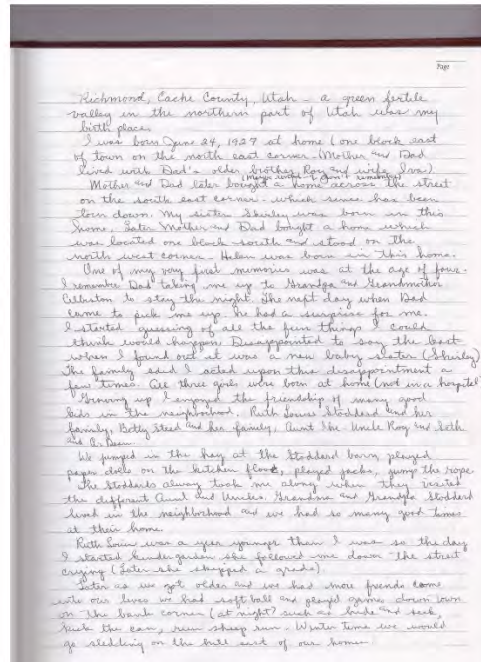 Page
Richmond, Cache County, Utah - a green fertile
valley in the northern part of Utah was my
birth place.
I was born June 24, 1927 at home (one block east
of town on the north east corner - Mother and Dad
lived with Dad's older brother Roy and wife Iva)
Mother and Dad later bought a home across the street
on the south east corner - which since has been
torn down. My sister Shirley was born in this
home. Later Mother and Dad bought a home which
was located one block south and stood on the
north west corner. Helen was born in this home.
One of my very first memories was at the age of four.
I remember Dad taking me up to Grandpa and Grandmother
to stay the night. The next day when Dad
came to pick me up, he had a surprise for me.
I started guessing of all the fun things I could
think would happen. Disappointed to say the least
when I found out it was a new baby sister (Shirley)
The family said I acted upon this disappointment a
few times. All three girls were born at home (not in a hospital)
Growing up I enjoyed the friendship of many good
kids in the neighborhood. Ruth Louise Stoddard and her
family, Betty Steed and her family, Aunt Uncle Roy and
and Dean.
We jumped in the hay at the Stoddard barn, played
paper dolls on the kitchen floor, played jacks, jump the rope.
The Stoddards always took me along when they visited
the different Aunt and Uncles. Grandma and Grandpa Stoddard
lived in the neighborhood and we had so many good times
at their home.
Ruth Louise was a year younger than I was so the day
I started kindergarden she followed me down the street
crying (Later she skipped a grade)
Later as we got older and we had more friends come
into our lives we had softball and played games down town
on the bank corner (at night) such as hide and seek,
kick the can, run sheep run. Winter time we would
go sledding on the hill east of our home.